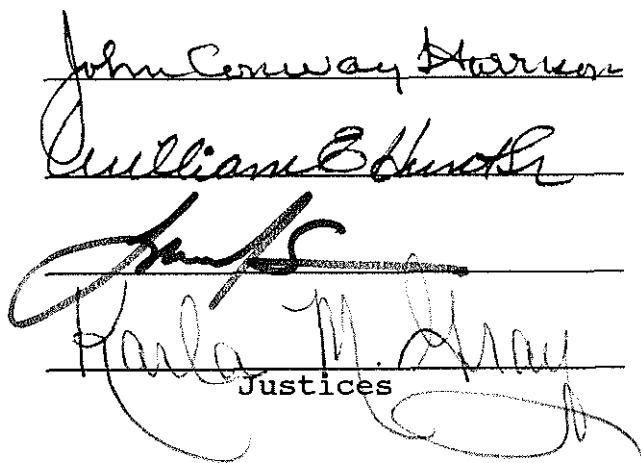 John Conway Harrison
William E Hunt Sr
Karla M. Gray
Justices